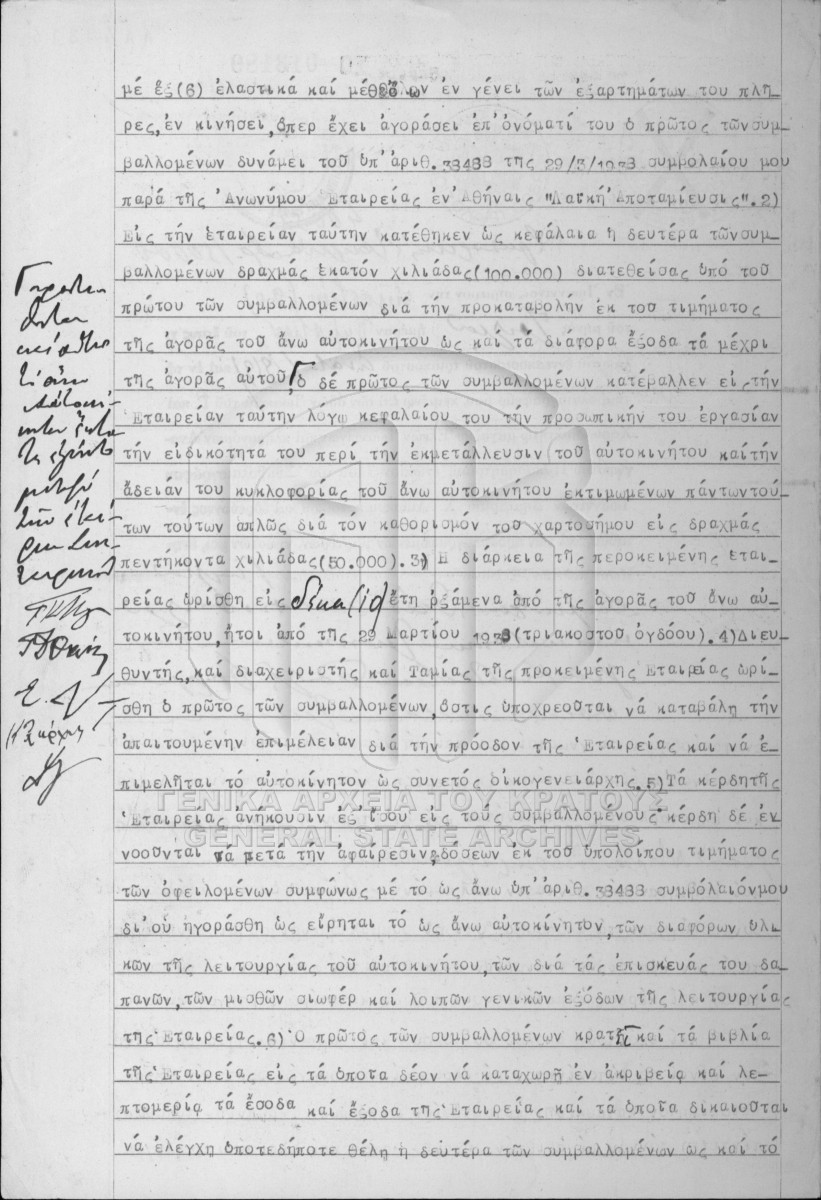 μέ ἕξ(6) ἐλαστικά καί μέθ ὅλων ἐν γένει τῶν ἐξαρτημάτων του πλῆ-
ρες,ἐν κινήσει,ὅπερ ἔχει ἀγοράσει ἐπ'ὀνόματί του ὁ πρῶτος τῶνσυμ-
βαλλομένων δυνάμει τοῦ ὑπ'ἀριθ.38488 της 29/3/1938 συμβολαίου μου
παρά τῆς 'Ανωνύμου 'Εταιρείας ἐν'Αθήναις "Λαϊκή 'Αποταμίευσις".2)
Εἰς τήν ἑταιρείαν ταύτην κατέθηκεν ὡς κεφάλαια ἡ δευτέρα τῶνσυμ-
βαλλομένων δραχμάς ἑκατόν χιλιάδας(100.000) διατεθείσας ὑπό τοῦ
πρώτου τῶν συμβαλλομένων διά τήν προκαταβολήν ἐκ του τιμήματος
τῆς ἀγορᾶς τοῦ ἄνω αὐτοκινήτου ὡς καί τά διάφορα ἔξοδα τά μέχρι
τῆς ἀγορᾶς αὐτοῦ Γ ὁ δέ πρῶτος τῶν συμβαλλομένων κατέβαλλεν εἰς τήν
'Εταιρείαν ταύτην λόγω κεφαλαίου του τήν προσωπικήν του ἐργασίαν
τήν εἰδικότητά του περί τήν ἐκμετάλλευσιν τοῦ αὐτοκινήτου καίτήν
ἄδειάν του κυκλοφορίας τοῦ ἄνω αὐτοκινήτου ἐκτιμωμένων πάντωντού-
των τούτων ἁπλῶς διά τόν καθορισμόν του χαρτοσήμου εἰς δραχμάς
πεντήκοντα χιλιάδας(50.000).3) Ἡ διάρκεια τῆς περοκειμένης εται-
ρείας ὡρίσθη εἰς δέκα (10) ἔτη ἀρξάμενα ἀπό τῆς ἀγορᾶς τοῦ ἄνω αὐ-
τοκινήτου,ἤτοι ἀπό τῆς 29 Μαρτίου 1938(τριακοστοῦ ὀγδόου).4)Διευ-
θυντής,καί διαχειριστής καί Ταμίας τῆς προκειμένης Ἑταιρείας ὡρί-
σθη ὁ πρῶτος τῶν συμβαλλομένων,ὅστις ὑποχρεοῦται νά καταβάλη τήν
ἀπαιτουμένην ἐπιμέλειαν διά τήν πρόοδον τῆς 'Εταιρείας καί νά ἐ-
πιμελῆται τό αὐτοκίνητον ὡς συνετός οἰκογενειάρχης.5)Τά κέρδητῆς
'Εταιρείας ἀνήκουσιν ἐξ ἴσου εἰς τούς συμβαλλομένους κέρδη δέ ἐν
νοοῦνται τά μετά τήν ἀφαίρεσιν,δόσεων ἐκ τοῦ ὑπολοίπου τιμήματος
τῶν ὀφειλομένων συμφώνως μέ τό ὡς ἄνω ὑπ'ἀριθ.38488 συμβόλαιόνμου
δι'οὗ ἠγοράσθη ὡς εἴρηται τό ὡς ἄνω αὐτοκίνητον,τῶν διαφόρων ὑλι-
κῶν τῆς λειτουργίας τοῦ αὐτοκινήτου,τῶν διά τάς ἐπισκευάς του δα-
πανῶν,τῶν μισθῶν σωφέρ καί λοιπῶν γενικῶν ἐξόδων τῆς λειτουργίας
τῆς 'Εταιρείας.6)'Ο πρῶτος τῶν συμβαλλομένων κρατεῖ καί τά βιβλία
τῆς 'Εταιρείας εἰς τά ὁποῖα δέον νά καταχωρῆ ἐν ἀκριβεία καί λε-
πτομερία τά ἔσοδα καί ἔξοδα τῆς 'Εταιρείας καί τά ὁποῖα δικαιοῦται
νά ἐλέγχη ὁποτεδήποτε θέλη ἡ δευτέρα τῶν συμβαλλομένων ως καί τό
ΓΕΝΙΚΑ ΑΡΧΕΙΑ ΤΟΥ ΚΡΑΤΟΥΣ
GENERAL STATE ARCHIVES